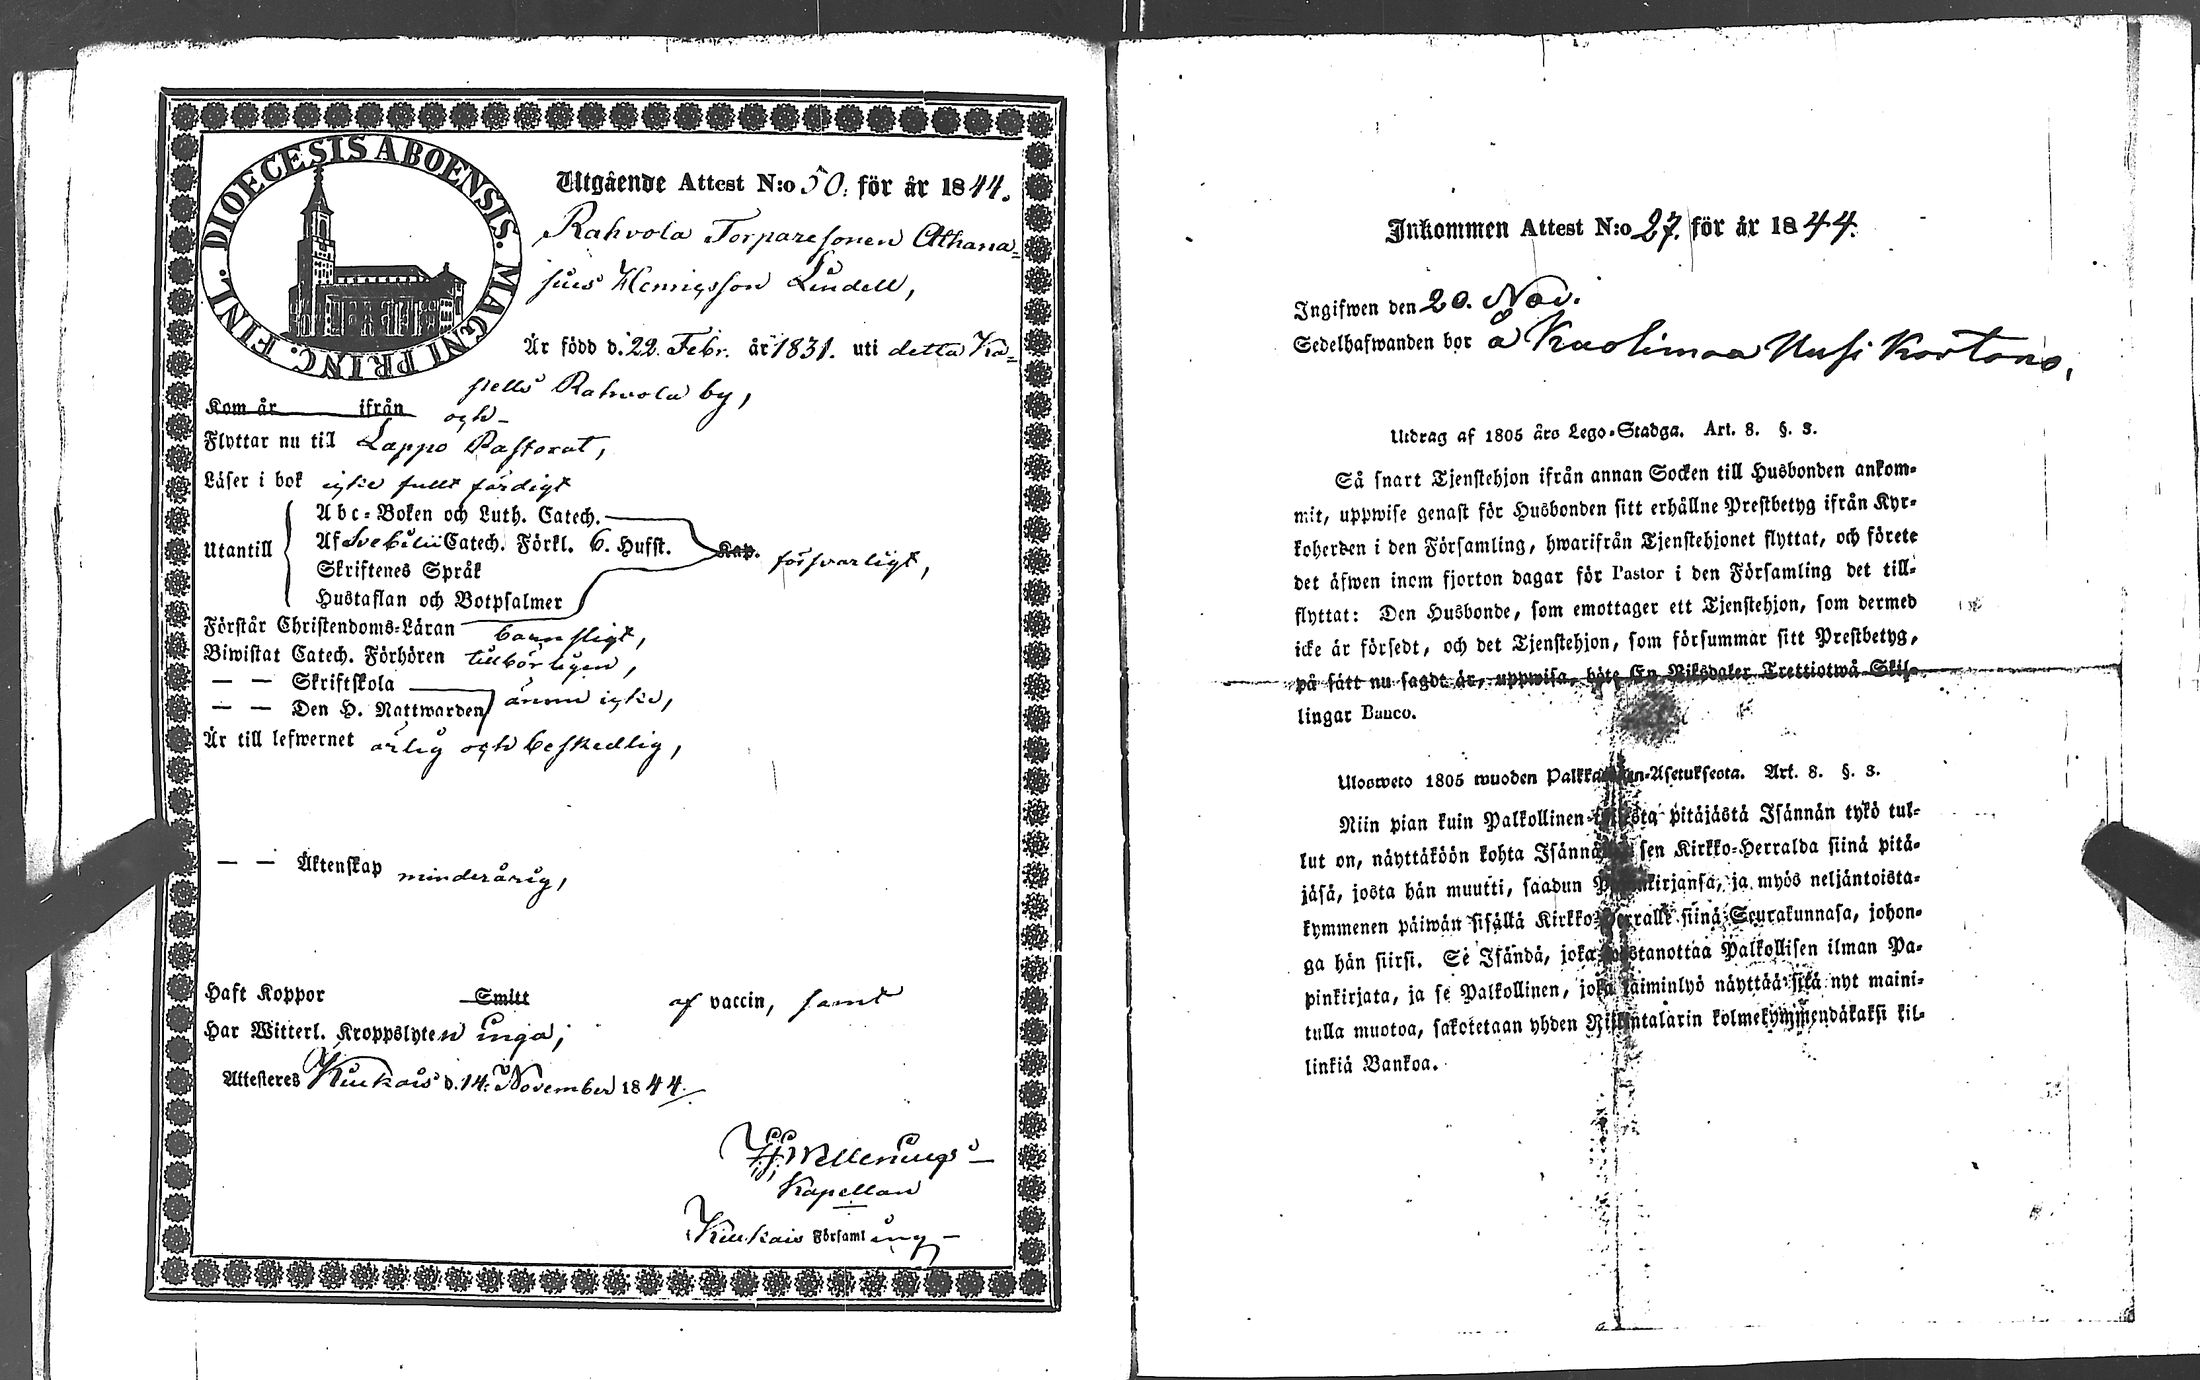 DIOECESIS ABOENSIS. MAGNI PRINC. FINL.
Utgående Attest N:o 50. för år 1844.
Rahvola Torparesonen Athana=
sius Henrigsson Lindell,
Är född d. 22. Febr. år 1831. uti detta Ka=
pells Rahvola by,
Kom år ifrån
och
Flyttar nu till Lappo Pastorat,
Läser i bok icke fullt färdigt
Utantill
Abc-Boken och Luth. Catech.
Af Svebilii Catech. Förkl. 6. Hufst. Kap. försvarligt,
Skriftenes Språk
Hustaflan och Botpsalmer
Förstår Christendoms-Läran barnsligt,
Biwistat Catech. Förhören tillbörligen,
— — Skriftskola
— — Den H. Nattwarden ännu icke,
Är till lefwernet ärlig och beskedlig,
— — Äktenskap minderårig,
Haft Koppor Smitt af vaccin, samt
Har Witterl. Kroppslyten inga;
Attesteras Kiukais d. 14. November 1844.
Kapellan
Kiukais Församling
Inkommen Attest N:o 27. för år 1844.
Ingifwen den 20. Nov.
Sedelhafwanden bor å Kuolimaa Uusi Kortano,
Utdrag af 1805 års Lego-Stadga. Art. 8. §. 3.
Så snart Tjenstehjon ifrån annan Socken till Husbonden ankom-
mit, uppwise genast för Husbonden sitt erhållne Prestbetyg ifrån Kyr-
koherden i den Församling, hwarifrån Tjenstehjonet flyttat, och förete
det äfwen inom fjorton dagar för Pastor i den Församling det till-
flyttat: Den Husbonde, som emottager ett Tjenstehjon, som dermed
icke är försedt, och det Tjenstehjon, som försummar sitt Prestbetyg,
på sätt nu sagdt är, uppwisa, böte En Riksdaler Trettiotwå Skil-
lingar Banco.
Ulosweto 1805 wuoden Palkkalisten-Asetuksesta. Art. 8. §. 3.
Niin pian kuin Palkollinen toisesta pitäjästä Isännän tykö tul-
lut on, näyttäköön kohta Isännälle sen Kirkko-Herralda siinä pitä-
jäsä, josta hän muutti, saadun Papinkirjansa, ja myös neljäntoista-
kymmenen päiwän sisällä Kirkko-Herralle siinä Seurakunnasa, johon-
ga hän siirsi. Se Isändä, joka wastanottaa Palkollisen ilman Pa-
pinkirjata, ja se Palkollinen, joka laiminlyö näyttää sitä nyt maini-
tulla muotoa, sakotetaan yhden Riikintalarin kolmekymmendäkaksi kil-
linkiä Bankoa.